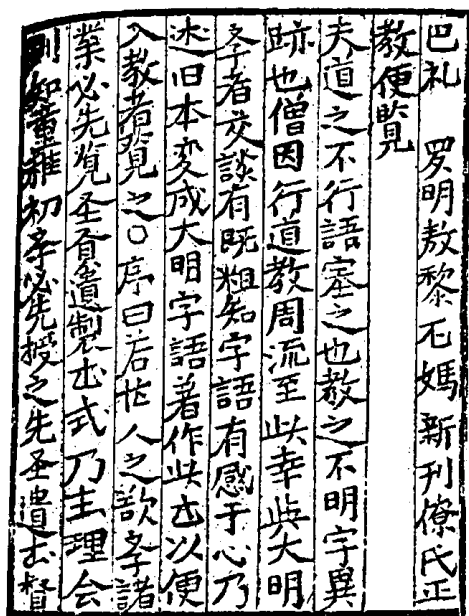 巴礼 罗明敖黎尼媽新刊僚氏正
教便覧
夫道之不行語塞之也教之不明字異
跡也僧因行道教周流至此幸與大明
斈者交談有既粗知字語有感于心乃
述旧本変成大明字語著作此书以便
入教者覧之〇序曰若世人之欲斈諸
業必先覧圣賢遺製书式乃主理会
則知童稚初斈必先授之先圣遺书督